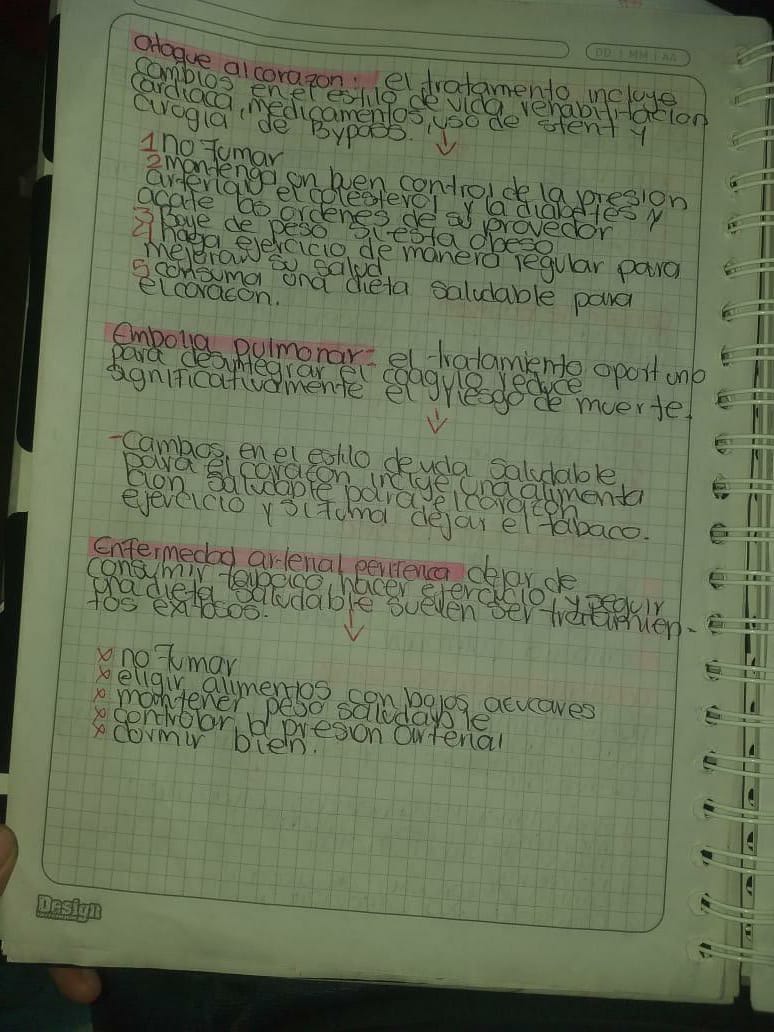 DD | MM | AA
ataque al corazon: el tratamento incluye
cambios en el estilo de vida, rehabilitacion
cardiaca, medicamentos, uso de stent y
cirogia de Bypass.
1 no fumar
2 mantenga on buen control de la presion
arterial, el colesterol y la diabetes y
acate las ordenes de su provedor
3 Baje de peso si esta obeso
4 haga ejercicio de manera regular para
mejorar su salud
5 consuma una dieta saludable para
el corazon.
Embolia pulmonar: el tratamiento oportuno
para desintegrar el coagulo reduce
significativamente el riesgo de muerte.
-Cambos en el estilo de vida saludable
para el corazon incluye una alimenta
cion saludable para el corazon
ejercicio y si fuma dejar el tabaco.
Enfermedad arterial periferica dejar de
consumir hacer ejercicio y seguir
una dieta saludable suelen ser tratamien-
tos exitosos.
x no fumar
x eligir alimentos con bajos azucares
x mantener peso saludable
x controlar la presion arterial
x dormir bien.
Design